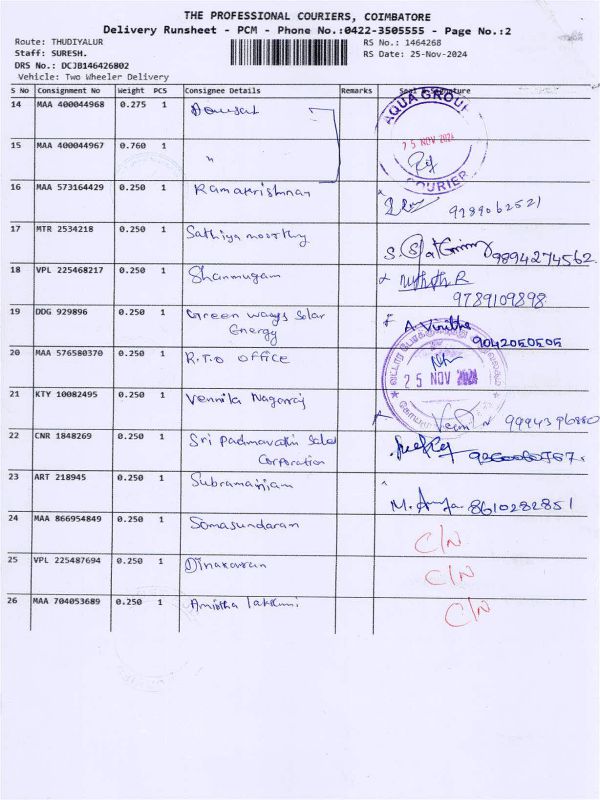 THE PROFESSIONAL COURIERS, COIMBATORE
Delivery Runsheet - PCM - Phone No.:0422-3505555 - Page No.:2
Route: THUDIYALUR
RS No.: 1464268
Staff: SURESH.
RS Date: 25-Nov-2024
DRS No.: DCJB146426802
Vehicle: Two Wheeler Delivery
S No Consignment No Weight PCS Consignee Details Remarks Seal & Signature
14 MAA 400044968 0.275 1
AQUA GROUP
25 NOV 2024
COURIER
15 MAA 400044967 0.760 1 "
16 MAA 573164429 0.250 1 Ramakrishnan 9789062521
17 MTR 2534218 0.250 1 Sathiya moorthy 9894274562
18 VPL 225468217 0.250 1 Shanmugam 9789109898
19 DDG 929896 0.250 1 Green ways Solar
Energy
A. Vinitha 9042050505
20 MAA 576580370 0.250 1 R.T.O office
25 NOV 2024
21 KTY 10082495 0.250 1 Vennila Nagaraj
22 CNR 1848269 0.250 1 Sri Padmavathi
Corporation
23 ART 218945 0.250 1 Subramaniam 8610282851
24 MAA 866954849 0.250 1 Somasundaram C/N
25 VPL 225487694 0.250 1 Dinakaran C/N
26 MAA 704053689 0.250 1 C/N